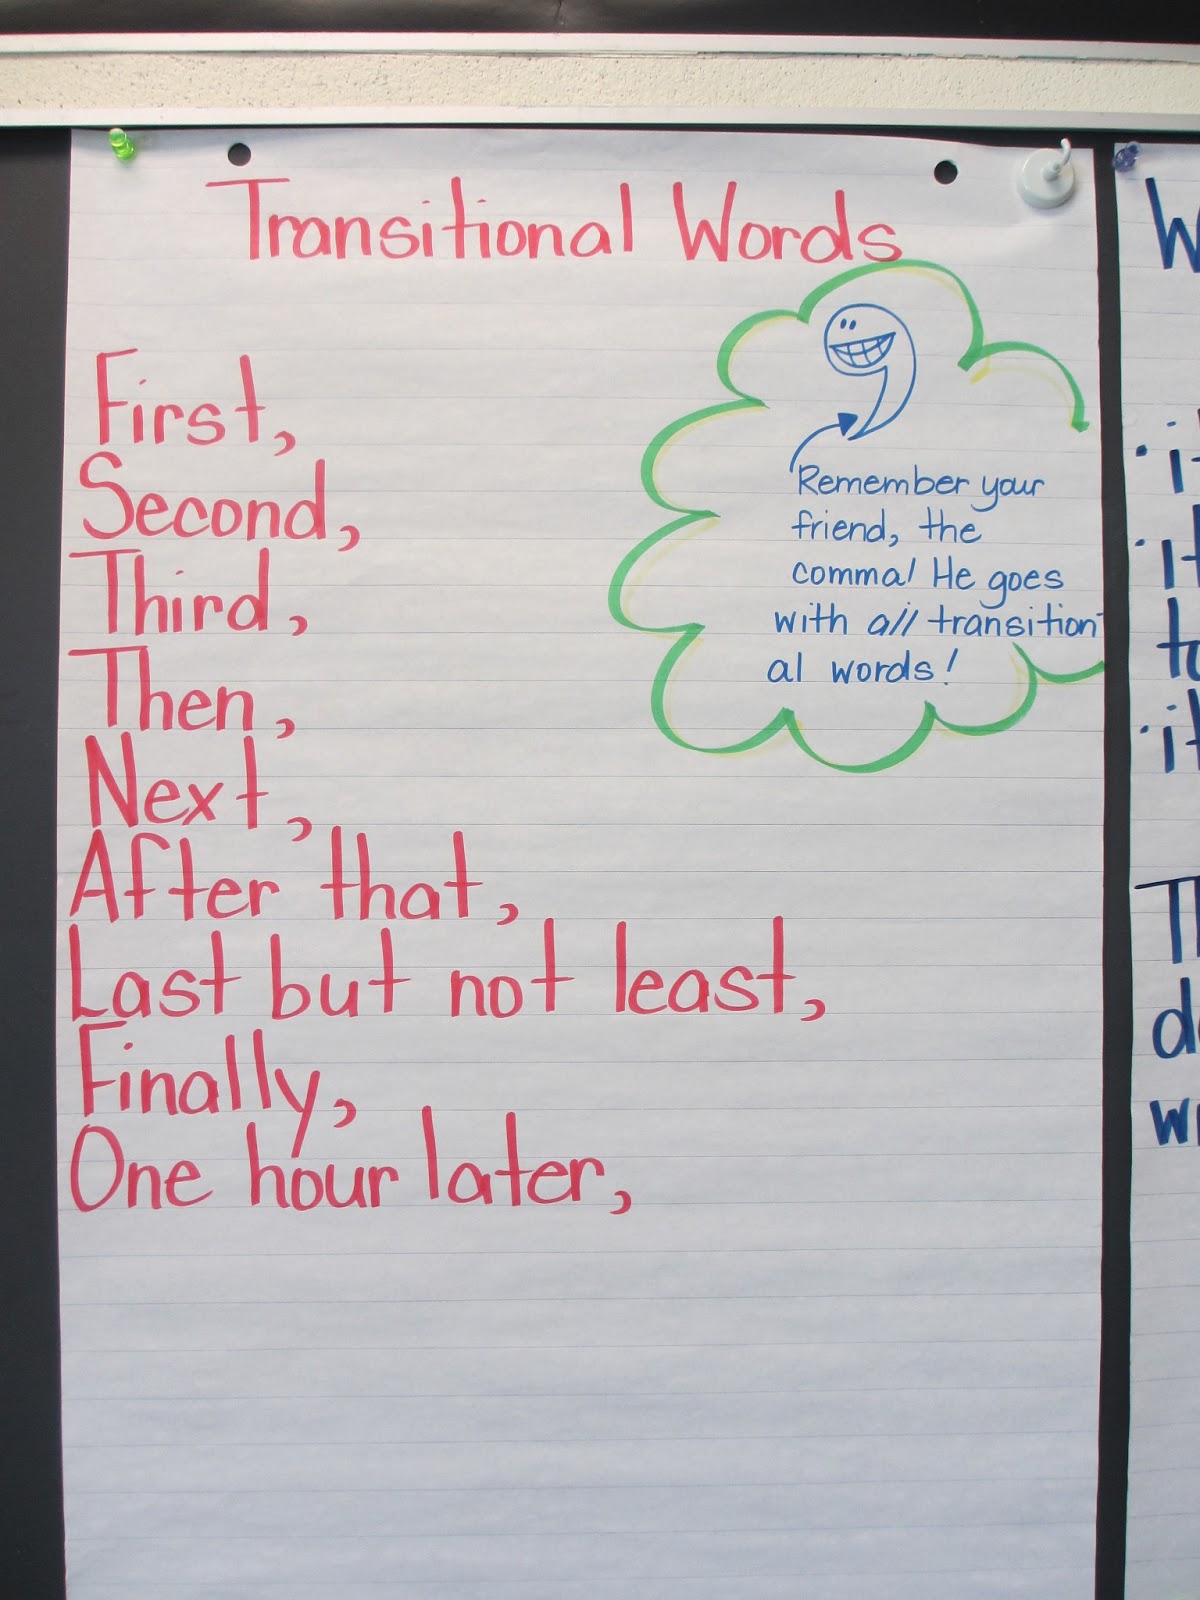 Transitional Words
First,
Second,
Third,
Then,
Next,
After that,
Last but not least,
Finally,
One hour later,
Remember your
friend, the
comma! He goes
with all transition-
al words!